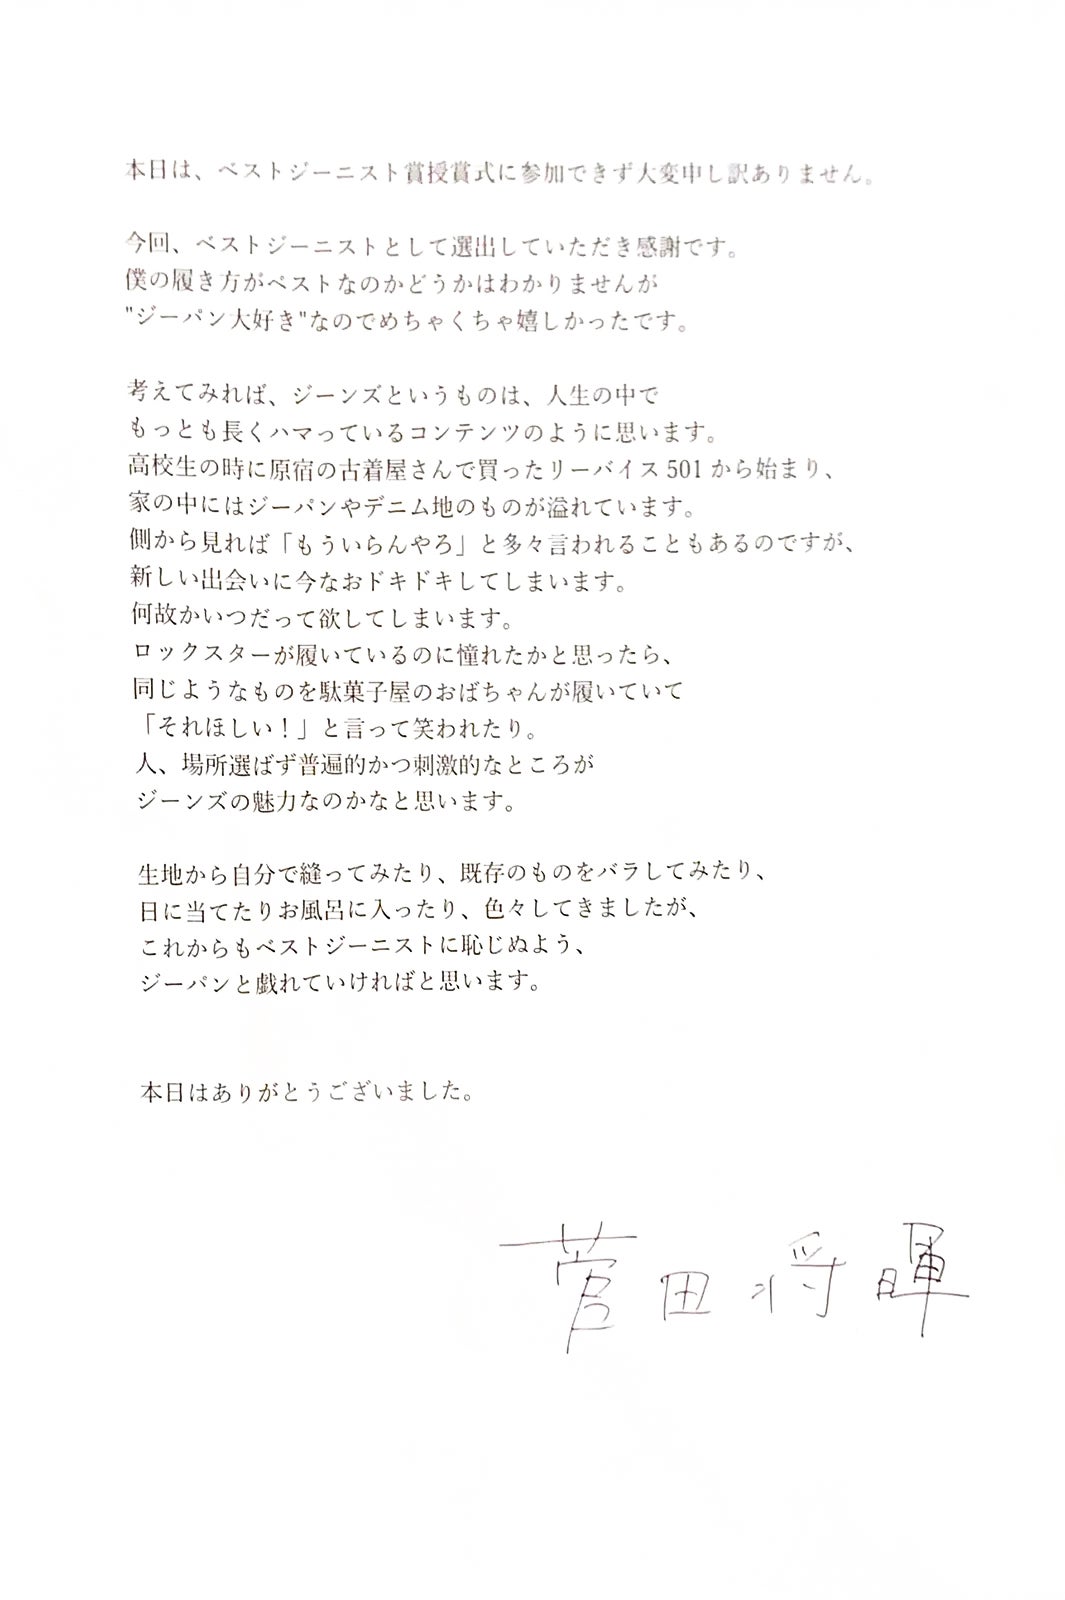 本日は、ベストジーニスト賞授賞式に参加できず大変申し訳ありません。
今回、ベストジーニストとして選出していただき感謝です。
僕の履き方がベストなのかどうかはわかりませんが
"ジーパン大好き"なのでめちゃくちゃ嬉しかったです。
考えてみれば、ジーンズというものは、人生の中で
もっとも長くハマっているコンテンツのように思います。
高校生の時に原宿の古着屋さんで買ったリーバイス 501 から始まり、
家の中にはジーパンやデニム地のものが溢れています。
側から見れば「もういらんやろ」と多々言われることもあるのですが、
新しい出会いに今なおドキドキしてしまいます。
何故かいつだって欲してしまいます。
ロックスターが履いているのに憧れたかと思ったら、
同じようなものを駄菓子屋のおばちゃんが履いていて
「それほしい！」と言って笑われたり。
人、場所選ばず普遍的かつ刺激的なところが
ジーンズの魅力なのかなと思います。
生地から自分で縫ってみたり、既存のものをバラしてみたり、
日に当てたりお風呂に入ったり、色々してきましたが、
これからもベストジーニストに恥じぬよう、
ジーパンと戯れていければと思います。
本日はありがとうございました。
菅田将暉